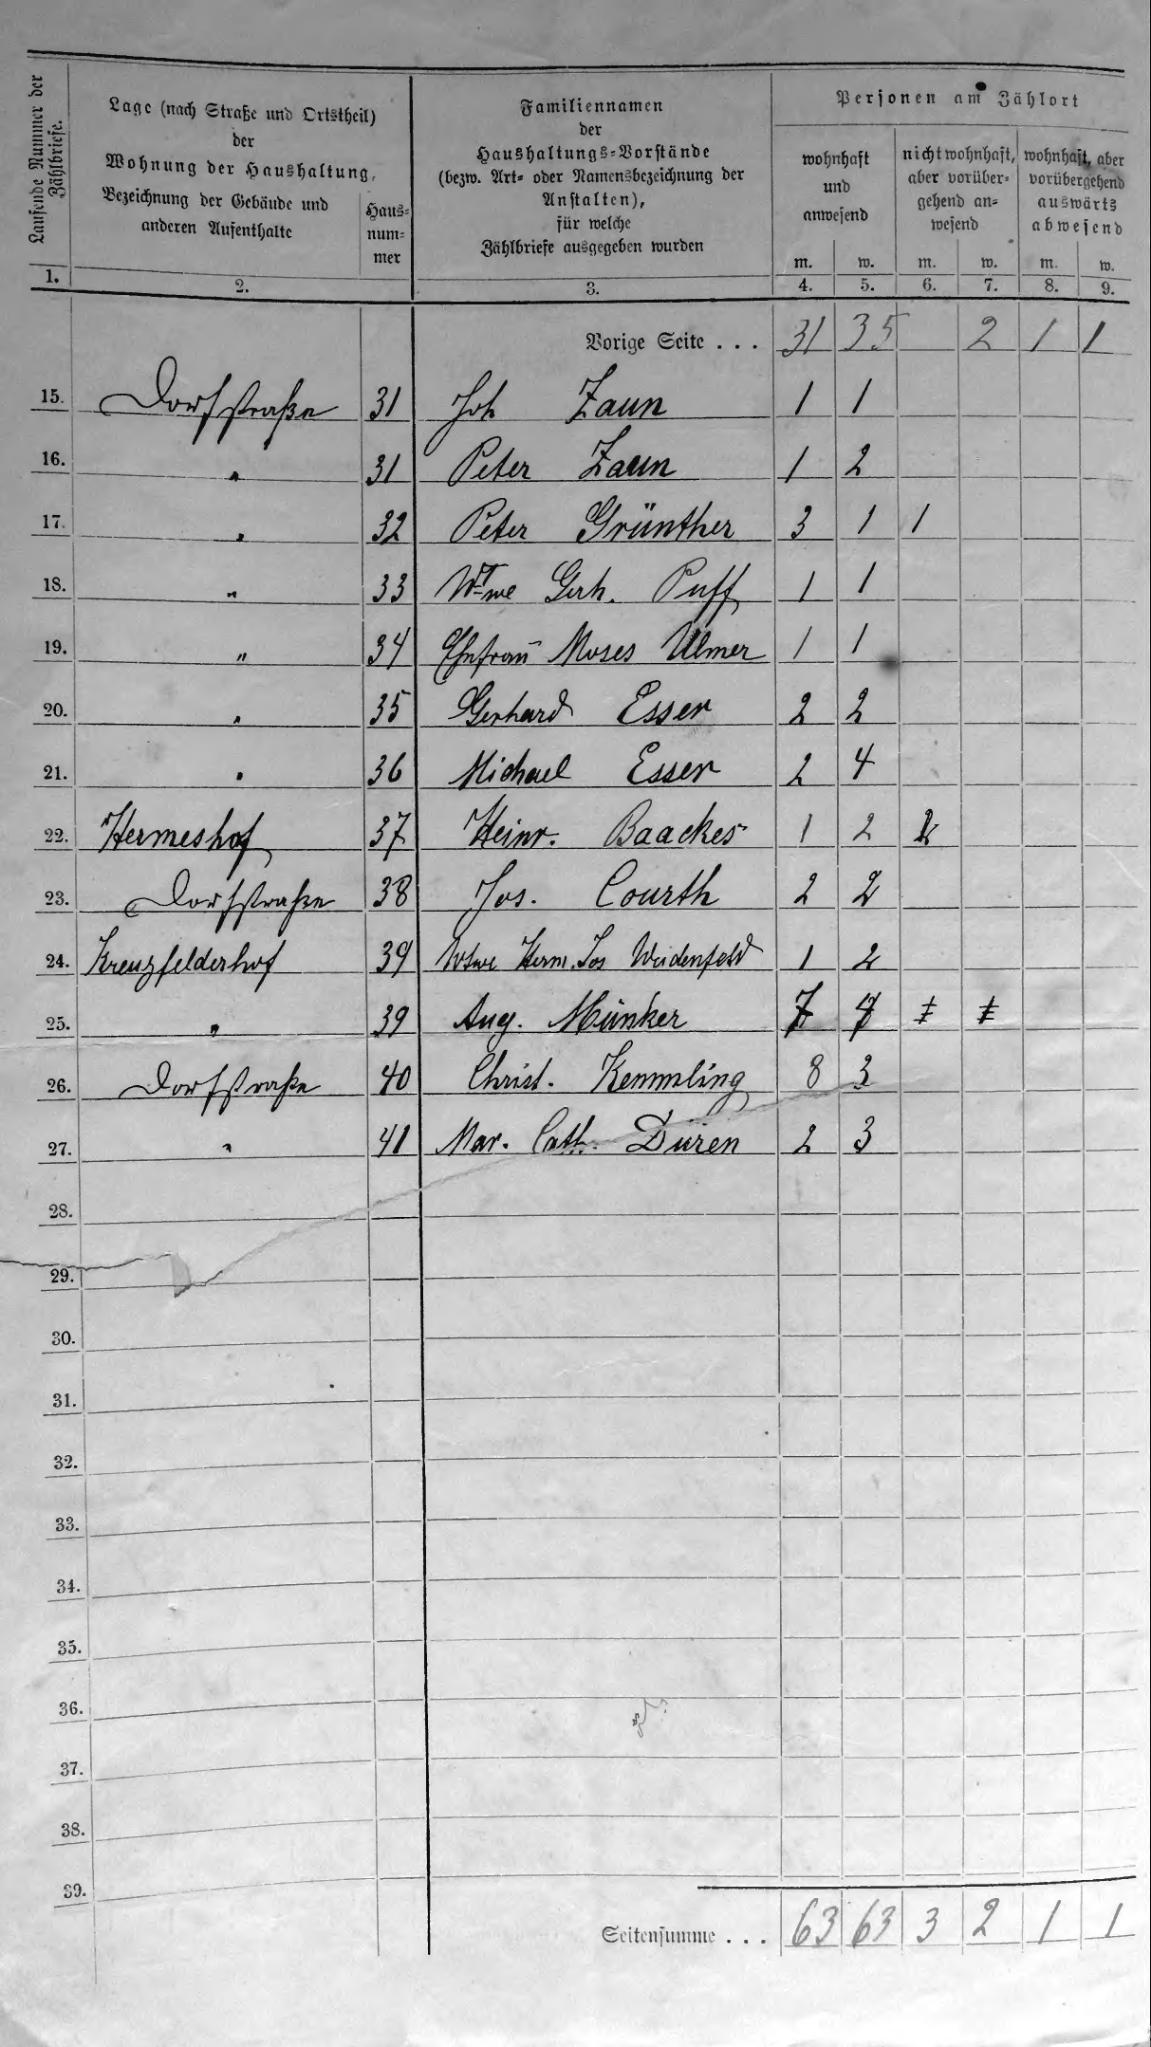 Laufende Nummer der Zählbriefe.
Lage (nach Straße und Ortstheil)
der
Wohnung der Haushaltung,
Bezeichnung der Gebäude und
anderen Aufenthalte
Haus-
num-
mer
Familiennamen
der
Haushaltungs-Vorstände
(bezw. Art- oder Namensbezeichnung der
Anstalten),
für welche
Zählbriefe ausgegeben wurden
Personen am Zählort
wohnhaft
und
anwesend
nicht wohnhaft,
aber vorüber-
gehend an-
wesend
wohnhaft, aber
vorübergehend
auswärts
abwesend
m. w. m. w. m. w.
1. 2. 3. 4. 5. 6. 7. 8. 9.
Vorige Seite . . . 31 35 2 1 1
15. Dorfstraße 31 Joh Zaun 1 1
16. " 31 Peter Zaun 1 2
17. " 32 Peter Grünther 3 1 1
18. " 33 Wtwe Gerh. Puff 1 1
19. " 34 Ehefrau Moses Ulmer 1 1
20. " 35 Gerhard Esser 2 2
21. " 36 Michael Esser 2 4
22. Hermeshof 37 Heinr. Baackes 1 2
23. Dorfstraße 38 Jos. Courth 2 2
24. Kreuzfelderhof 39 Wtwe Herm. Jos Weidenfeld 1 2
25. " 39 Aug. Münker 7
26. Dorfstraße 40 Christ. Kemmling 8 3
27. " 41 Mar. Cath. Düren 2 3
28.
29.
30.
31.
32.
33.
34.
35.
36.
37.
38.
39.
Seitensumme . . . 63 63 3 2 1 1